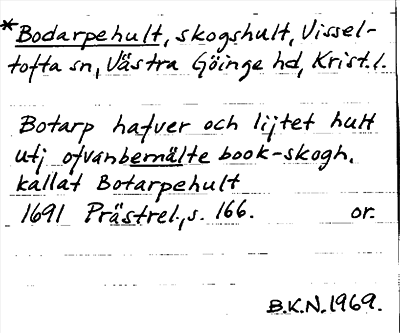 *Bodarpehult, skogshult, Vissel-
tofta sn, Västra Göinge hd, Krist.l.
Botarp hafver och lijtet hult
utj ofvanbemälte book-skogh.
kallat Botarpehult
1691 Prästrel., s. 166. or.
B.K.N. 1969.